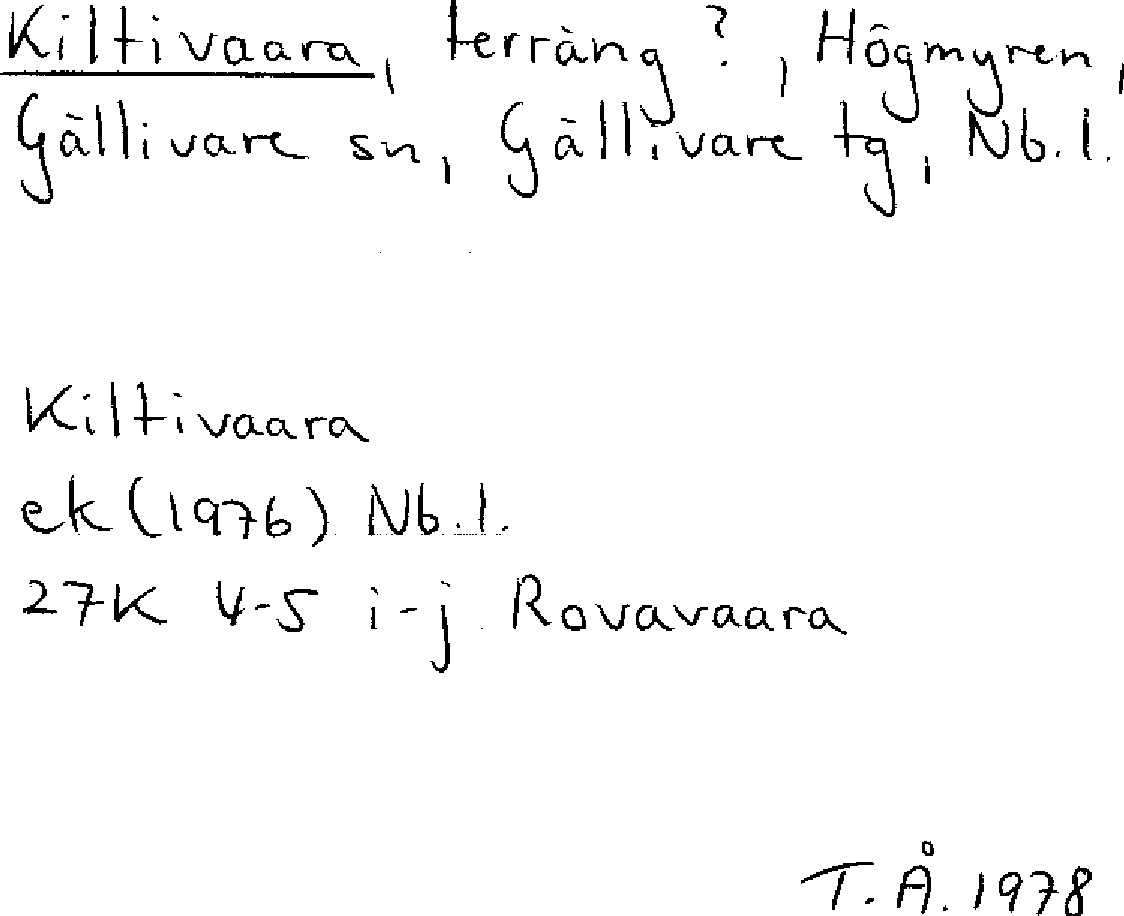 Kiltivaara, terräng?, Högmyren,
Gällivare sn, Gällivare tg, Nb.l.
Kiltivaara
ek (1976) Nb.l.
27K 4-5 i-j Rovavaara
T.Å. 1978